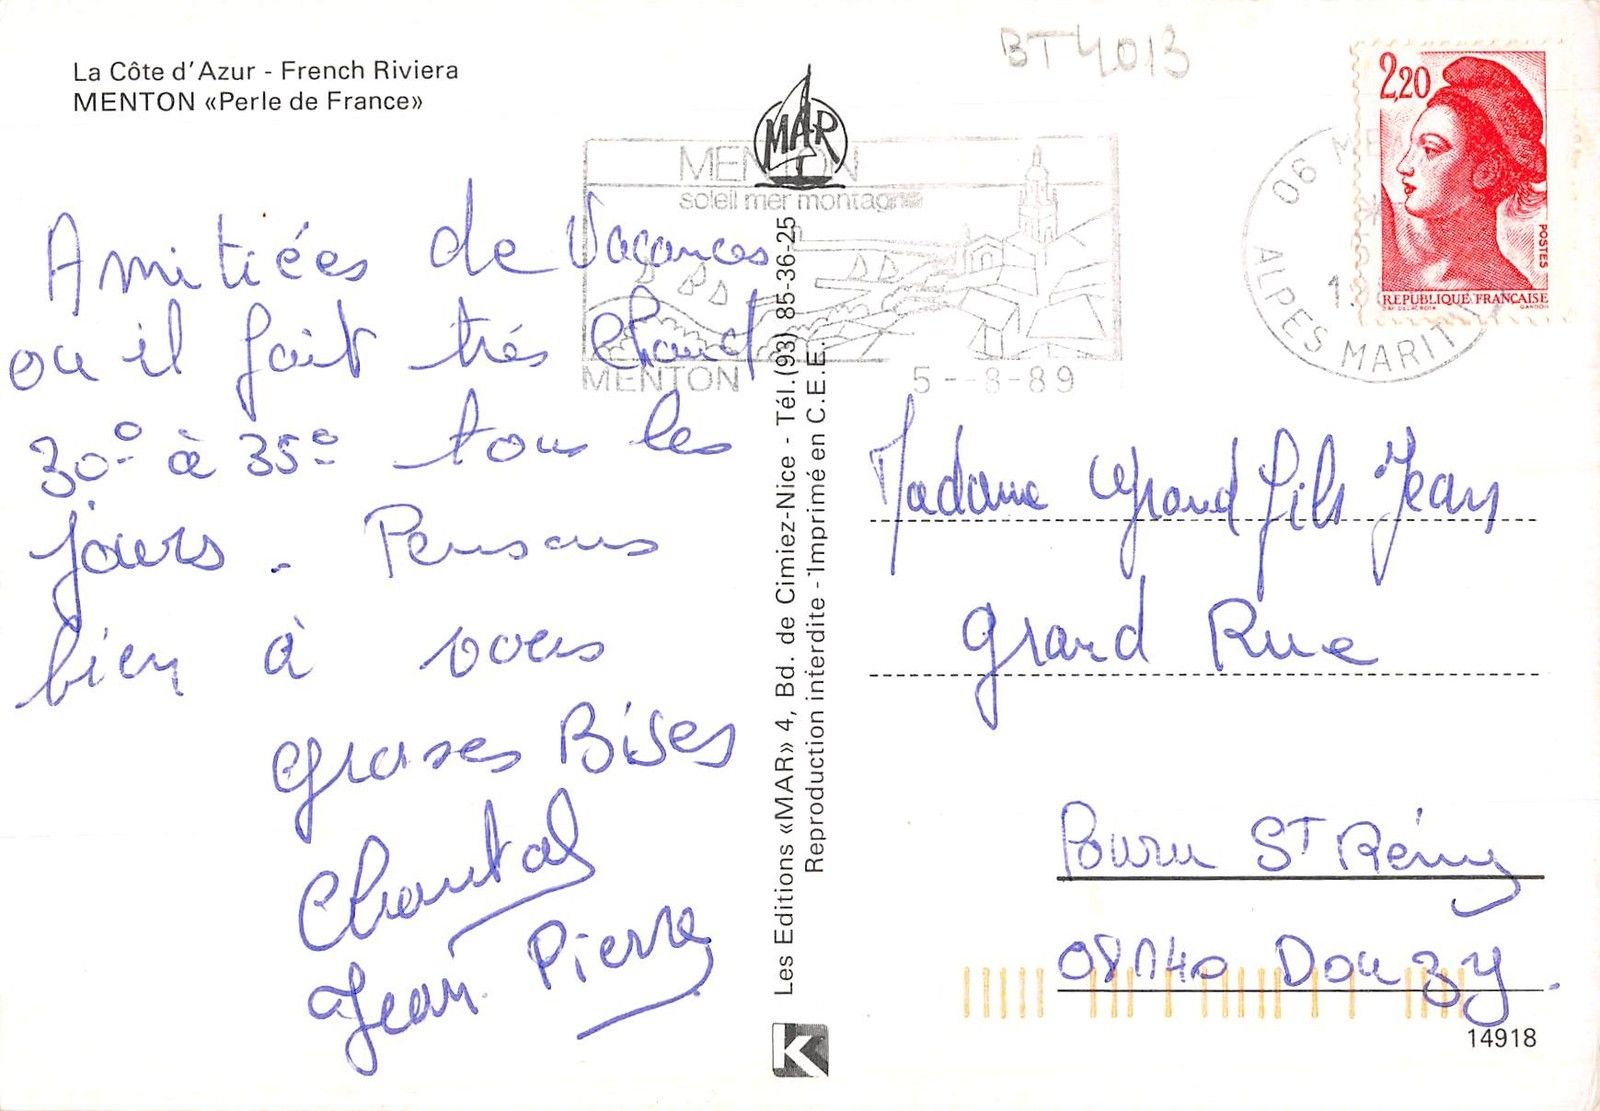 La Côte d'Azur - French Riviera
MENTON «Perle de France»
BT4013
MAR
MENTON
soleil mer montagne
MENTON
5--8-89
06 ME
ALPES MARIT
2,20
POSTES
REPUBLIQUE FRANÇAISE
Amitiées de Vacances
ou il fait trés Chaud
30° à 35° tous les
jours. Pensons
bien à vous
Grosses Bises
Chantal
Jean Pierre
Les Editions «MAR» 4, Bd. de Cimiez-Nice - Tél.(93) 85-36-25
Reproduction interdite - Imprimé en C.E.E.
K
Madame Grand fils Jean
Grand Rue
Pouru St Rémy
08140 Douzy.
14918